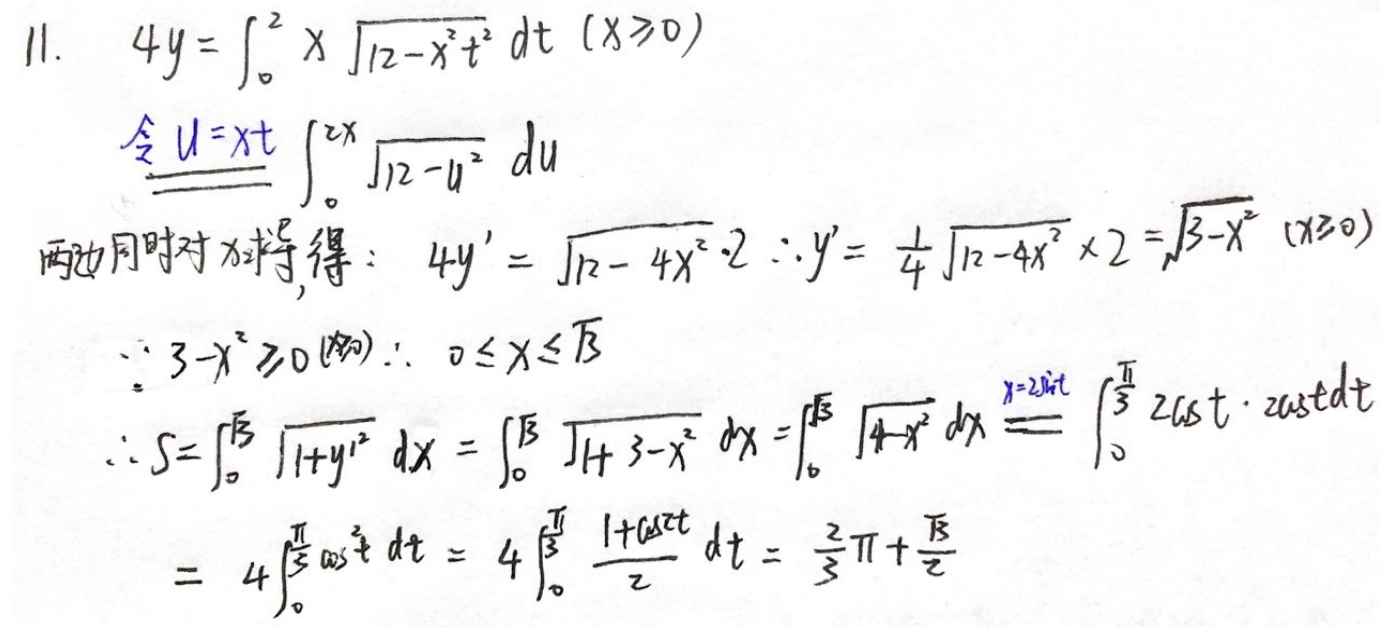 11. 4y = ∫₀² x √(12-x²t²) dt (x≥0)
令 u=xt ∫₀^{2x} √(12-u²) du
两边同时对x求导,得: 4y' = √(12-4x²)·2 ∴y' = 1/4 √(12-4x²) ×2 = √(3-x²) (x≥0)
∵ 3-x² ≥0 (x≥0) ∴ 0≤x≤√3
∴ S=∫₀^{√3} √(1+y'²) dx = ∫₀^{√3} √(1+3-x²) dx = ∫₀^{√3} √(4-x²) dx x=2sint = ∫₀^{π/3} 2cost·2cost dt
= 4∫₀^{π/3} cos²t dt = 4∫₀^{π/3} (1+cos2t)/2 dt = 2/3 π + √3/2